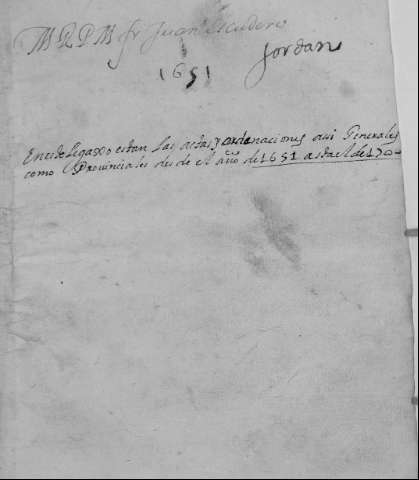 M R P M fr Juan Escudero
Jordan
1651
En este Legaxo estan Las actas y ordenaciones asi Generales
como Provinciales des de el año de 1651 asta el de 170